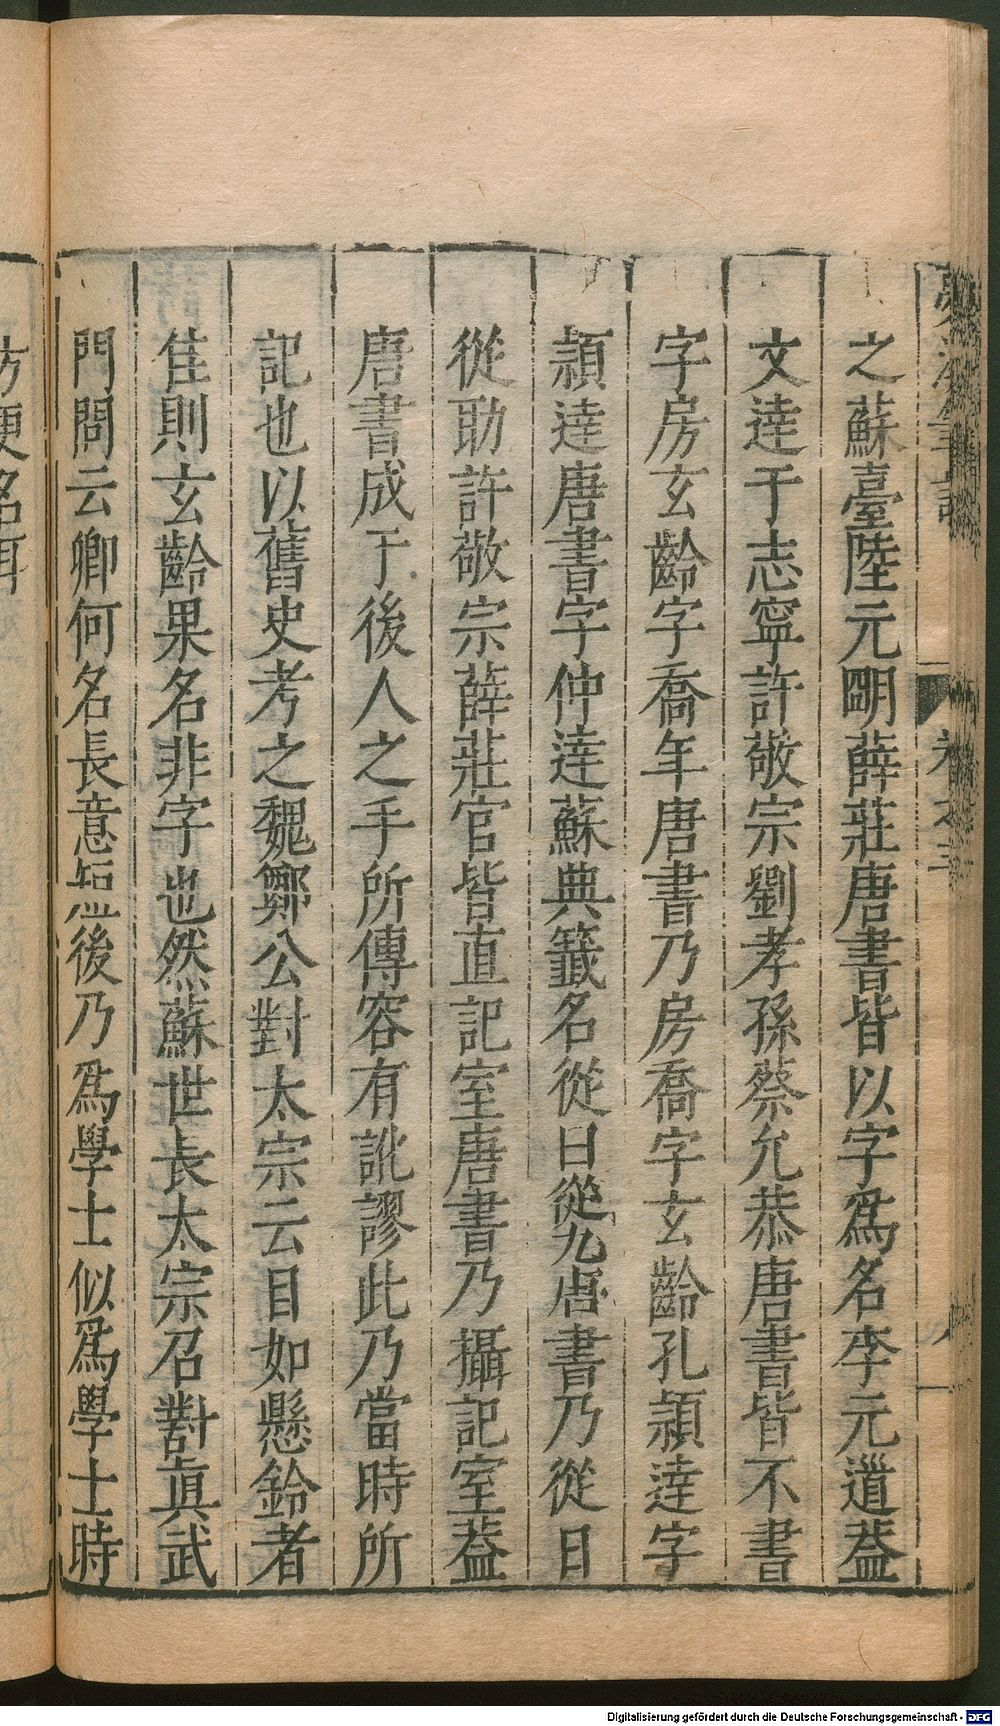 之蘇臺陸元朙薛莊唐書皆以字爲名李元道葢
文達于志寧許敬宗劉孝孫蔡允恭唐書皆不書
字房玄齡字喬年唐書乃房喬字玄齡孔頴達字
頴達唐書字仲達蘇典籖名從日從九唐書乃從日
從助許敬宗薛莊官皆直記室唐書乃攝記室葢
唐書成于後人之手所傳容有訛謬此乃當時所
記也以舊史考之魏鄭公對太宗云目如懸鈴者
佳則玄齡果名非字也然蘇世長太宗召對眞武
門問云卿何名長意短後乃爲學士似爲學士時
方更名耳
卷之三
Digitalisierung gefördert durch die Deutsche Forschungsgemeinschaft - DFG